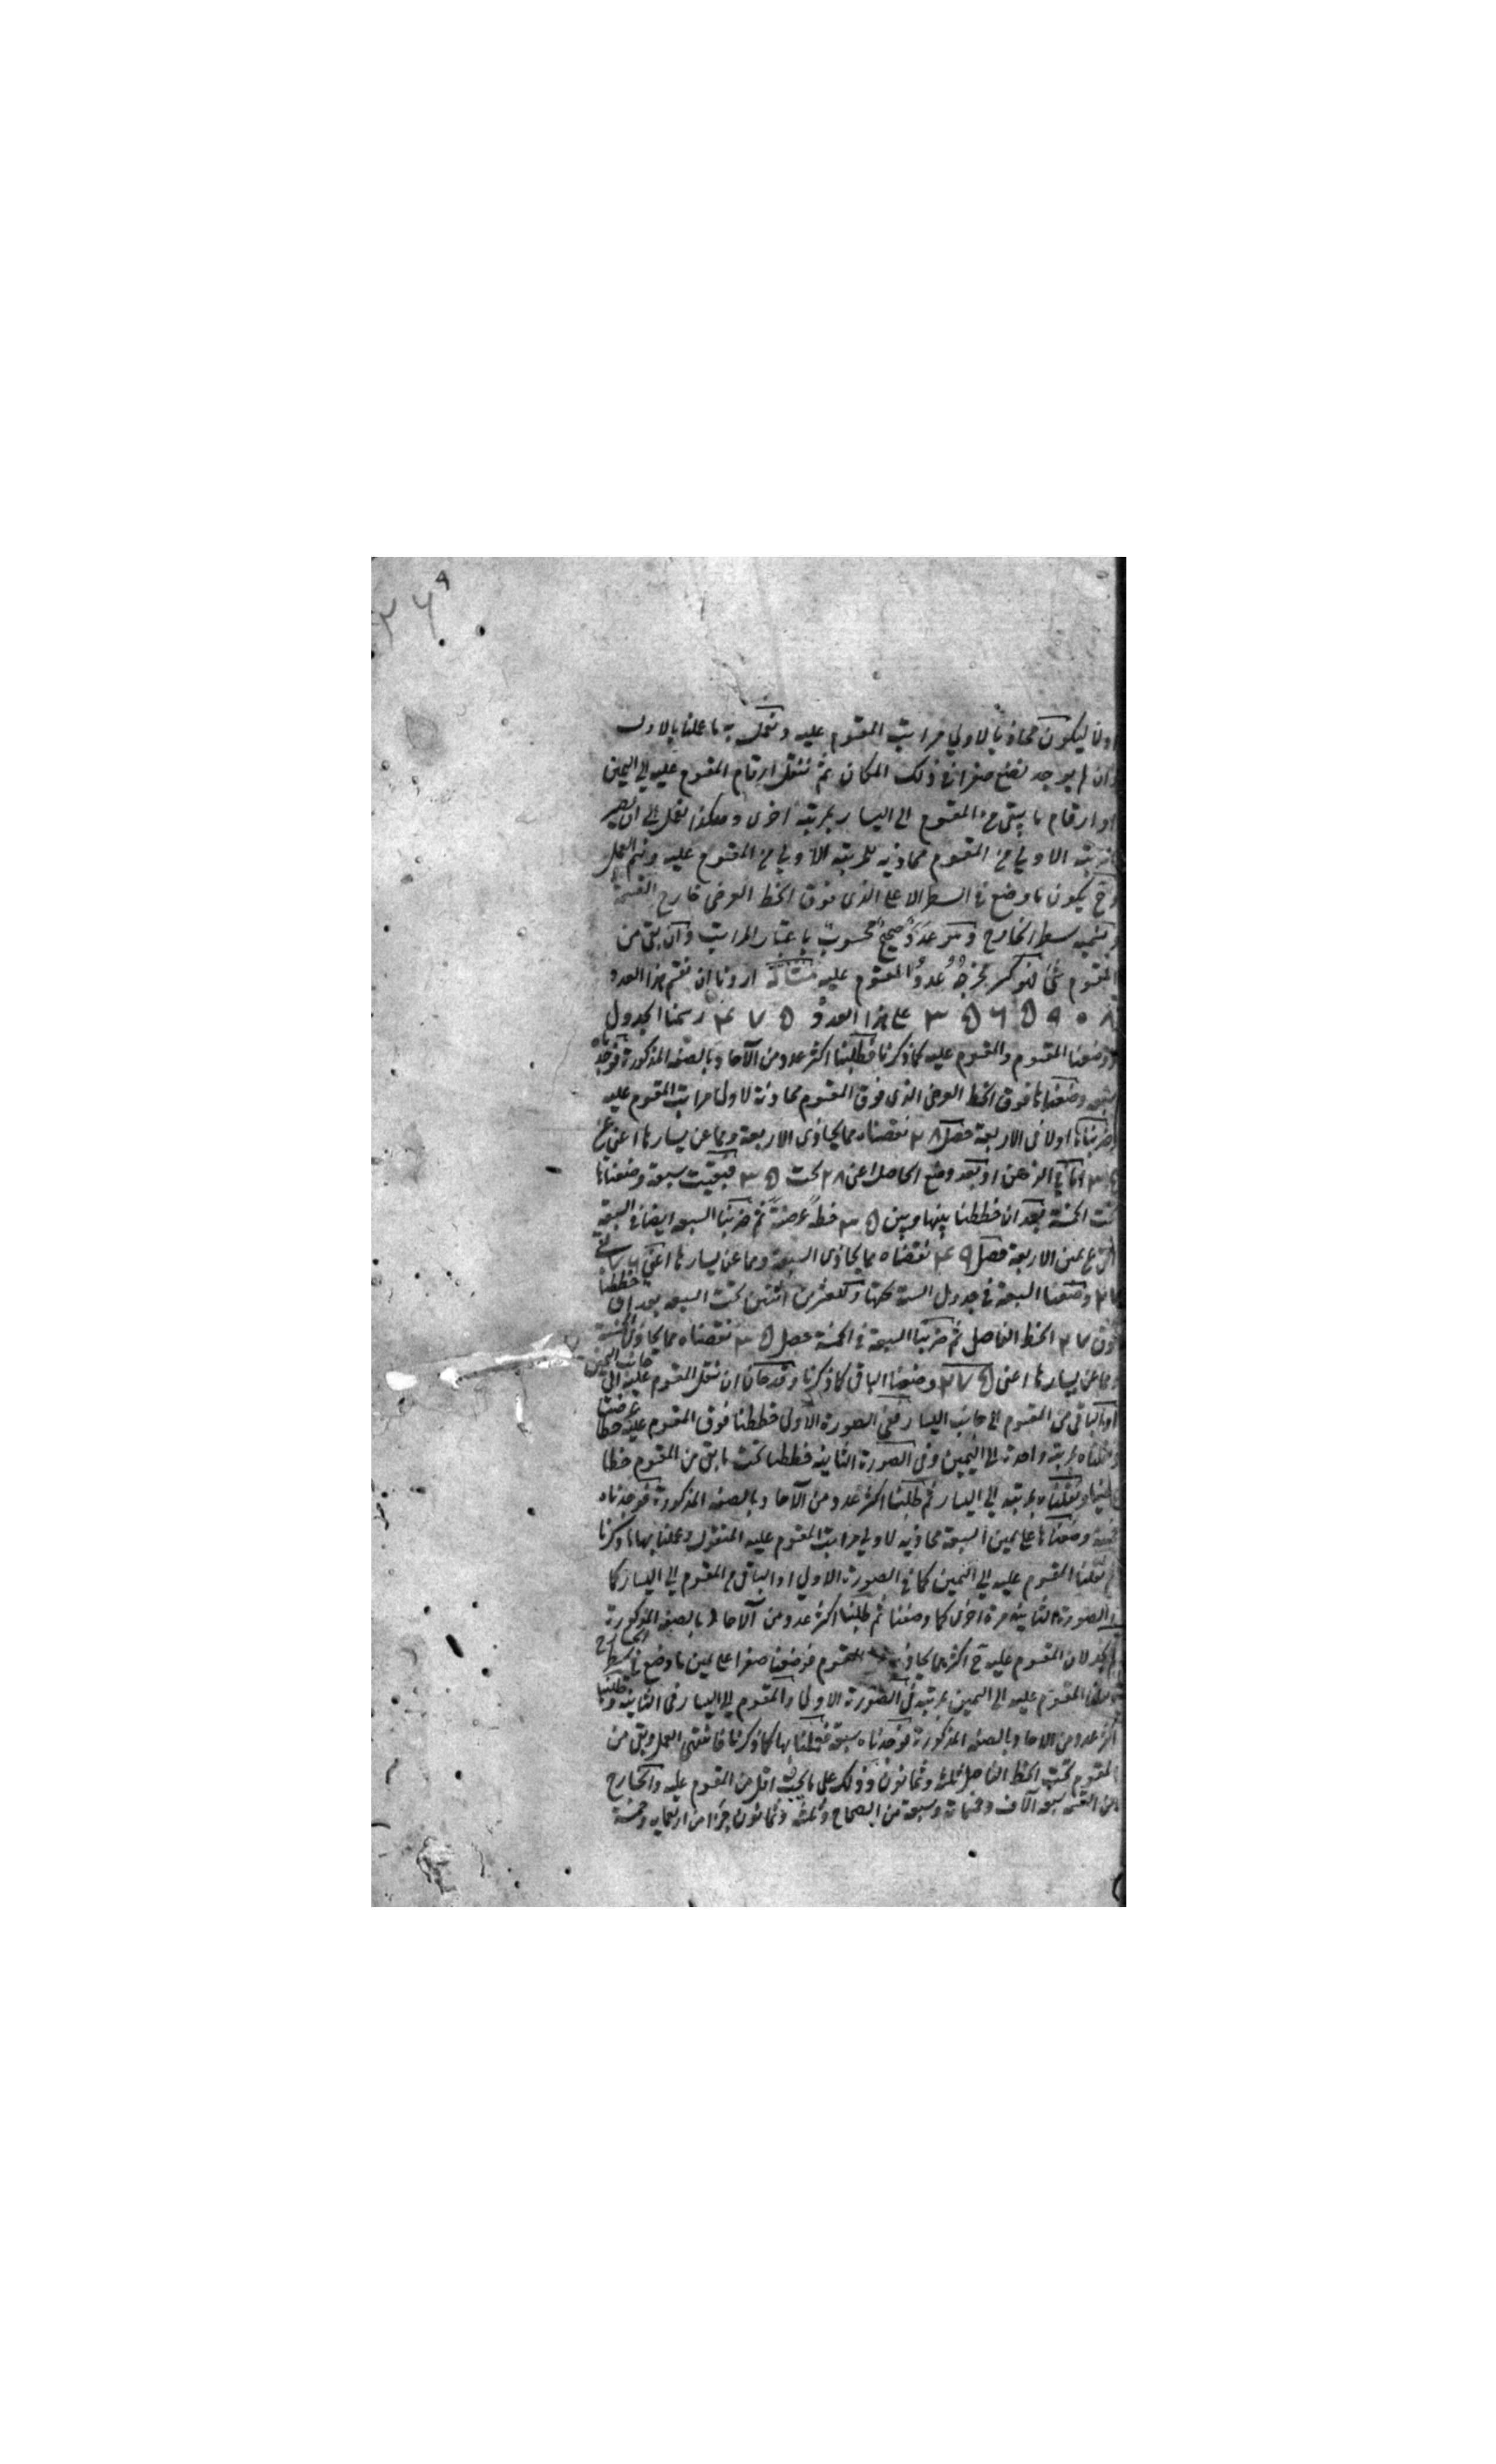 ٢٦٩
اولا ليكون محاذيا لاولى مراتب المقسوم عليه ونعمل به ما عملنا بالاول
وان لم يوجد نضع صفرا فى ذلك المكان ثم ننقل ارقام المقسوم عليه الى اليمين
او ارقام ما بقى من المقسوم الى اليسار بمرتبة اخرى وهكذا نعمل الى ان يصير
المرتبة الاولى من المقسوم محاذية للمرتبة الاولى من المقسوم عليه ونتم العمل
وح يكون ما وضع فى السطر الاعلى الذى فوق الخط العرضى خارج القسمة
ونسميه سطر الخارج وهو عدد صحيح محسوب باعتبار المراتب وان بقى من
المقسوم شئ فهو كسر مخرجه عدد المقسوم عليه مثاله اردنا ان نقسم هذا العدد
٣٥٦٥٩٠٨ على هذا العدد ٤٧٥ رسمنا الجدول
ووضعنا المقسوم والمقسوم عليه كما ذكرنا فطلبنا اكثر عدد من الآحاد بالصفة المذكورة فوجدناه
سبعة وضعناها فوق الخط العرضى الذى فوق المقسوم محاذية لاولى مراتب المقسوم عليه
وضربناها اولا فى الاربعة حصل ٢٨ نقصناه مما يحاذى الاربعة ومما عن يسارها اعنى من
٣٥ اما فى الذهن او بعد وضع الحاصل اعنى ٢٨ تحت ٣٥ فبقيت سبعة وضعناها
تحت الخمسة بعد ان خططنا بينها وبين ٣٥ خطا عرضيا ثم ضربنا السبعة ايضا فى السبعة
التى على يمين الاربعة حصل ٤٩ نقصناه مما يحاذى السبعة ومما عن يسارها اعنى ٧٦ بقى
٢٧ وضعنا السبعة فى جدول الستة تحتها وللعشرين اثنين تحت السبعة بعد ان خططنا
فوق ٢٧ الخط الفاصل ثم ضربنا السبعة فى الخمسة حصل ٣٥ نقصناه مما يحاذى الخمسة
ومما عن يسارها اعنى ٢٧٥ وضعنا الباقى كما ذكرنا وقد حان ان ننقل المقسوم عليه الى جانب اليمين
او الباقى من المقسوم الى جانب اليسار ففى الصورة الاولى خططنا فوق المقسوم عليه خطا عرضيا
ونقلناه بمرتبة واحدة الى اليمين وفى الصورة الثانية خططنا تحت ما بقى من المقسوم خطا
عرضيا ونقلناه بمرتبة الى اليسار ثم طلبنا اكثر عدد من الآحاد بالصفة المذكورة فوجدناه
خمسة وضعناها على يمين السبعة محاذية لاولى مراتب المقسوم عليه المنقول وعملنا بها ما ذكرنا
ثم نقلنا المقسوم عليه الى اليمين كما فى الصورة الاولى او الباقى من المقسوم الى اليسار كما
فى الصورة الثانية مرة اخرى كما وصفنا ثم طلبنا اكثر عدد من الآحاد بالصفة المذكورة
لم نجد لان المقسوم عليه ح اكثر مما يحاذيه من المقسوم فوضعنا صفرا على يمين ما وضع فى سطر الخارج
ونقلنا المقسوم عليه الى اليمين بمرتبة فى الصورة الاولى والمقسوم الى اليسار فى الثانية وطلبنا
اكثر عدد من الآحاد بالصفة المذكورة فوجدناه سبعة فعملنا بها كما ذكرنا فانتهى العمل وبقى من
المقسوم تحت الخط الفاصل ثلثة وثمانون وذلك على ما يجب اقل من المقسوم عليه والخارج
من القسمة سبعة آلاف وخمسمائة وسبعة من الصحاح وثلثة وثمانون جزءا من اربعمائة وخمسة